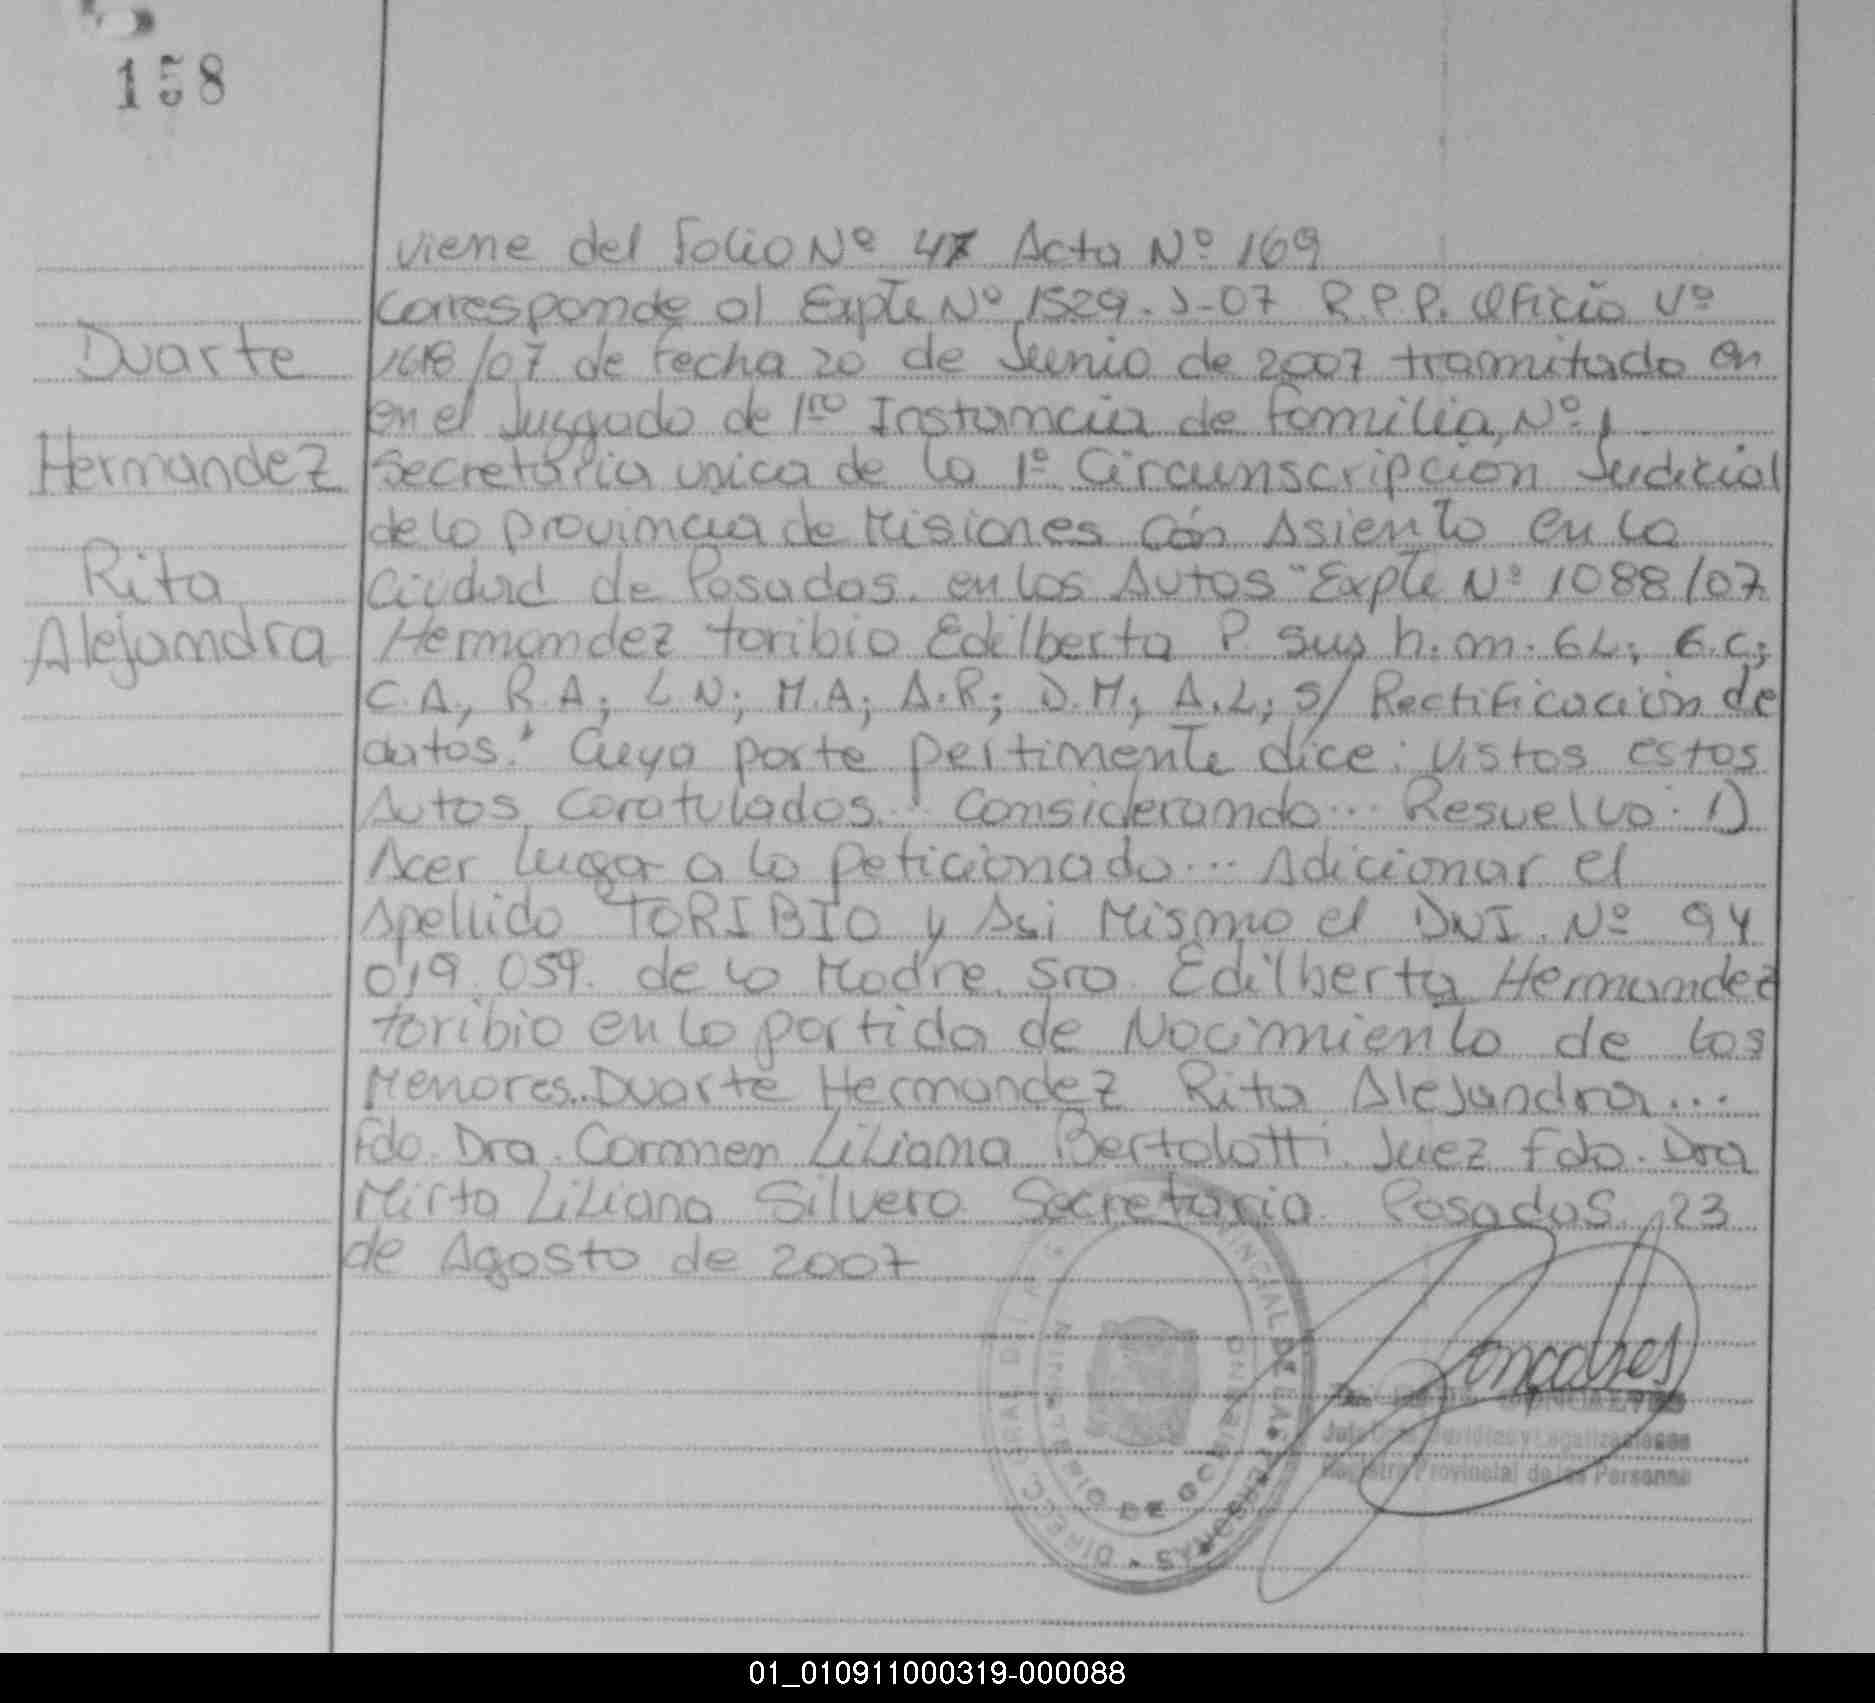 158
Duarte
Hernandez
Rita
Alejandra
viene del folio Nº 47 Acta Nº 169
Corresponde al Expte Nº 1529-J-07 R.P.P. Oficio Nº
1618/07 de fecha 20 de Junio de 2007 tramitado en
en el Juzgado de 1ro Instancia de familia, Nº 1
Secretaria unica de la 1º Circunscripción Judicial
de la provincia de Misiones con Asiento en la
Ciudad de Posadas. en los Autos "Expte Nº 1088/07
Hernandez toribio Edilberta P. sus h. m. G L; E.C;
C.A, R.A; L.N; M.A; A.R; D.M; A.L; S/ Rectificación de
datos." Cuya parte pertinente dice: Vistos estos
Autos Caratulados... Considerando... Resuelvo: 1)
Acer lugar a lo peticionado... Adicionar el
Apellido TORIBIO y Asi Mismo el DNI. Nº 94
019.059. de la Madre. Sra. Edilberta Hernandez
toribio en la partida de Nacimiento de los
Menores..Duarte Hernandez Rita Alejandra...
Fdo. Dra. Carmen Liliana Bertolotti Juez fdo. Dra
Mirta Liliana Silvero Secretaria Posadas 23
de Agosto de 2007
Goncalves
GONCALVES
Juridica y Legalizaciones
Registro Provincial de las Personas
MINISTERIO DE GOBIERNO
01_010911000319-000088